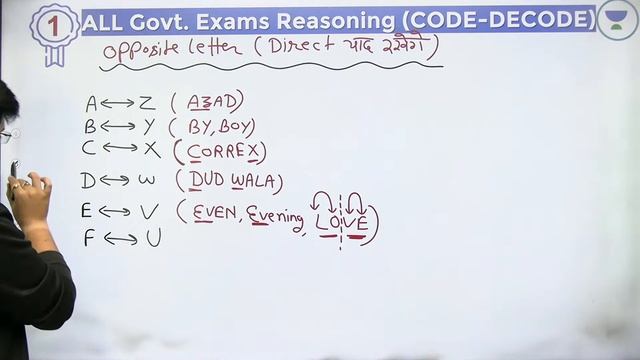 1 ALL Govt. Exams Reasoning (CODE-DECODE)
opposite letter (Direct याद रखेंगे)
A ↔ Z (AZAD)
B ↔ Y (BY, BOY)
C ↔ X (CORREX)
D ↔ W (DUD WALA)
E ↔ V (EVEN, Evening, LOVE)
F ↔ U